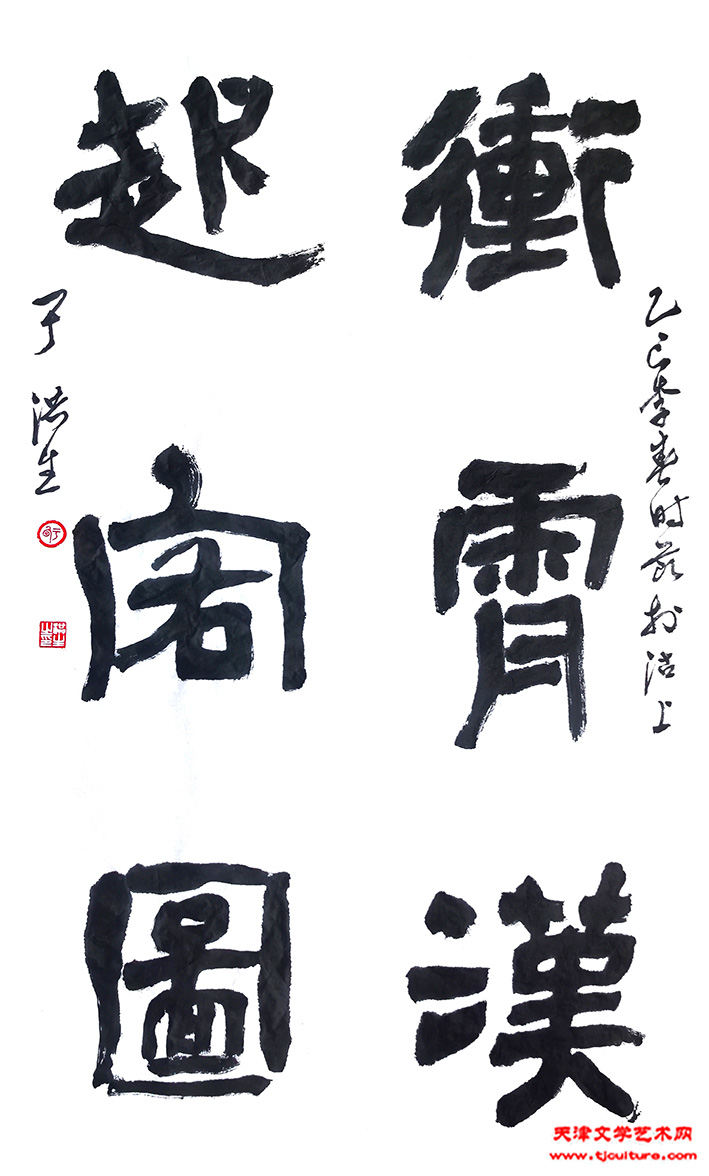 乙巳季春时节於沽上
衝霄漢
起宏圖
于洪生
天津文学艺术网
www.tjculture.com